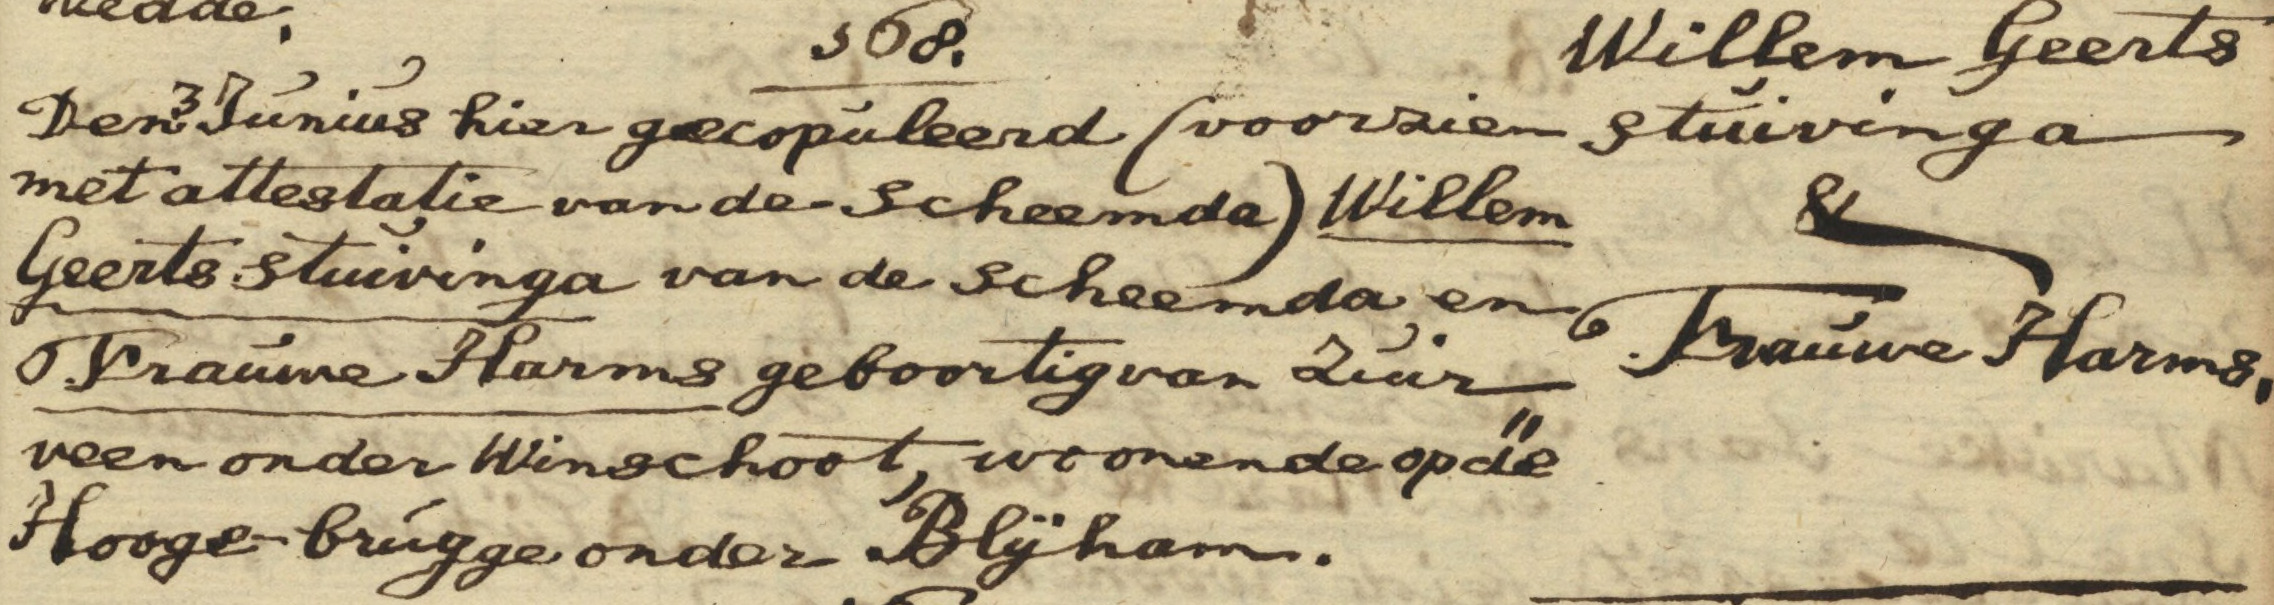 wedde.
168.
Den 3 Junius hier gecopuleerd (voorzien
met attestatie van de Scheemda) Willem
Geerts Stuivinga van de Scheemda en
Frauwe Harms geboortig van Zuir
veen onder Winschoot, woonende op de
Hooge-brugge onder Blijham.
Willem Geerts
Stuivinga
&
Frauwe Harms.